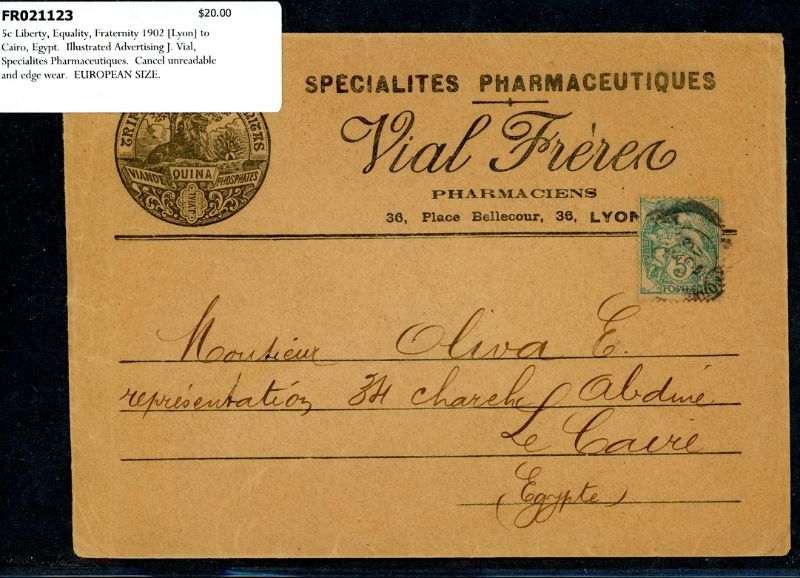 FR021123 $20.00
5c Liberty, Equality, Fraternity 1902 [Lyon] to
Cairo, Egypt. Illustrated Advertising J. Vial,
Specialites Pharmaceutiques. Cancel unreadable
and edge wear. EUROPEAN SIZE.
SPÉCIALITÉS PHARMACEUTIQUES
Vial Frères
PHARMACIENS
36, Place Bellecour, 36, LYON
VIANDE QUINA PHOSPHATES
VIAL
5
POSTES
Monsieur Oliva E.
représentation 34 charch Abdine
Le Caire
(Egypte)